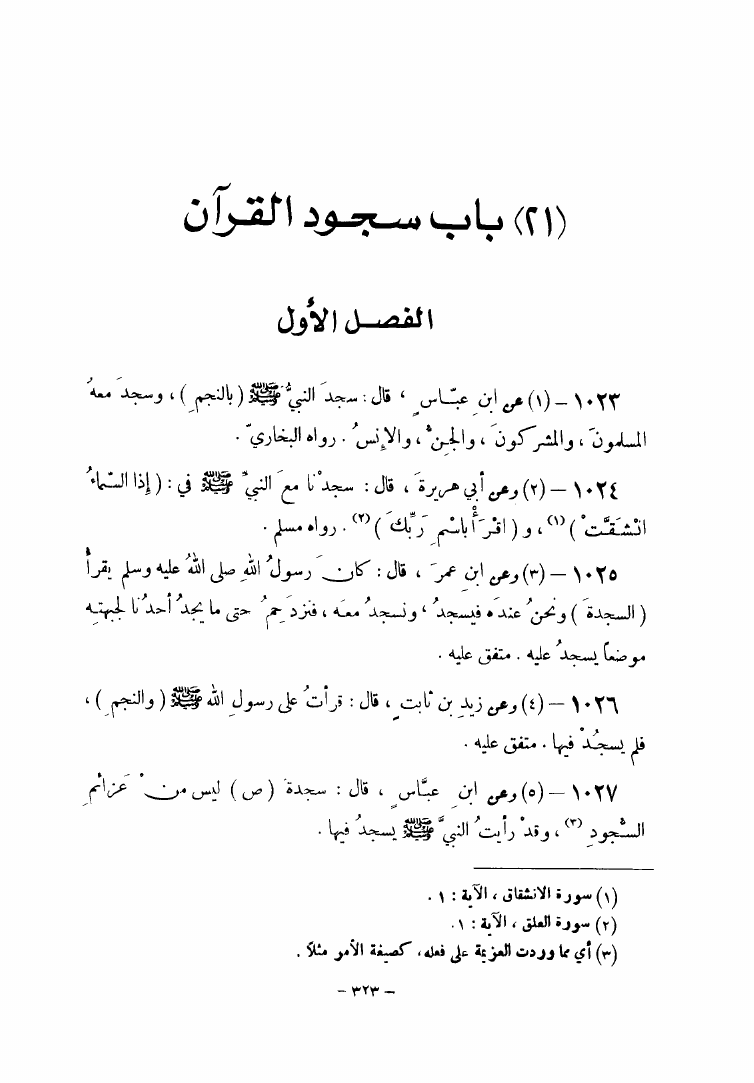 (٢١) باب سجود القرآن
الفصل الأول
١٠٢٣ – (١) عن ابنِ عبّاسٍ ، قال : سجدَ النبيُّ ﷺ ( بالنجمِ ) ، وسجدَ معهُ
المسلمونَ ، والمشركونَ ، والجنُّ ، والإنسُ . رواه البخاريّ .
١٠٢٤ – (٢) وعن أبي هريرةَ ، قال : سجدْنا معَ النبيِّ ﷺ في : ( إذا السّماءُ
انْشَقَّتْ ) (١) ، و ( اقْرَأْ باسْمِ رَبِّكَ ) (٢) . رواه مسلم .
١٠٢٥ – (٣) وعن ابنِ عمرَ ، قال : كانَ رسولُ اللهِ صلى اللهُ عليه وسلم يقرأُ
( السجدةَ ) ونحنُ عندَه فيسجدُ ، ونسجدُ معَه ، فنزدَحِمُ حتى ما يجدُ أحدُنا لجبهتِه
موضعاً يسجدُ عليه . متفق عليه .
١٠٢٦ – (٤) وعن زيدِ بنِ ثابتٍ ، قال : قرأتُ على رسولِ الله ﷺ ( والنجمِ ) ،
فلم يسجُدْ فيها . متفق عليه .
١٠٢٧ – (٥) وعن ابنِ عبَّاسٍ ، قال : سجدةُ ( ص ) ليس منْ عَزائمِ
السُّجودِ (٣) ، وقدْ رأيتُ النبيَّ ﷺ يسجدُ فيها .
(١) سورة الانشقاق ، الآية : ١ .
(٢) سورة العلق ، الآية : ١ .
(٣) أي مما وردت العزيمة على فعله، كصيغة الأمر مثلاً .
– ٣٢٣ –